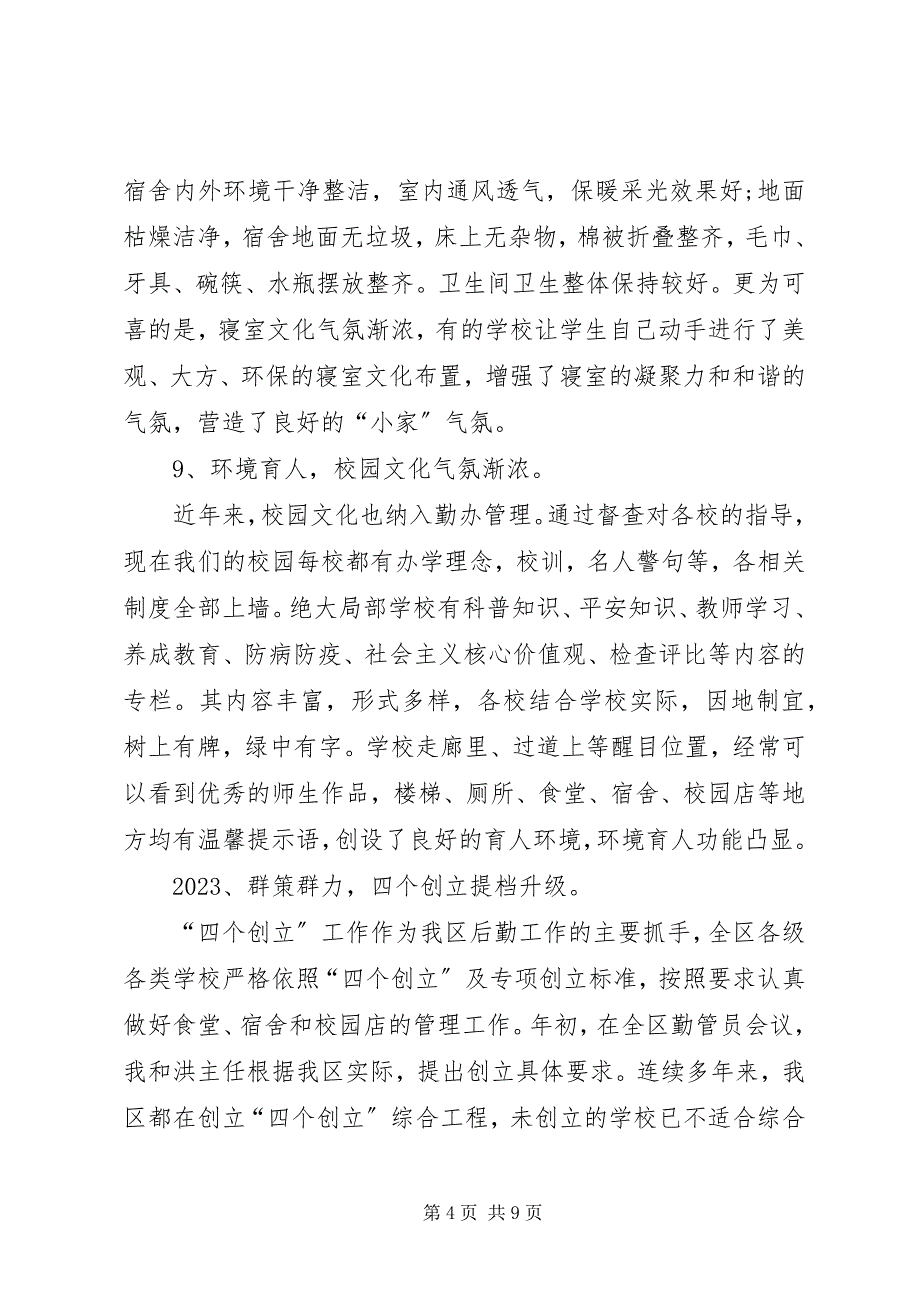 宿舍内外环境干净整洁，室内通风透气，保暖采光效果好;地面
枯燥洁净，宿舍地面无垃圾，床上无杂物，棉被折叠整齐，毛巾、
牙具、碗筷、水瓶摆放整齐。卫生间卫生整体保持较好。更为可
喜的是，寝室文化气氛渐浓，有的学校让学生自己动手进行了美
观、大方、环保的寝室文化布置，增强了寝室的凝聚力和和谐的
气氛，营造了良好的“小家〞气氛。
9、环境育人，校园文化气氛渐浓。
近年来，校园文化也纳入勤办管理。通过督查对各校的指导，
现在我们的校园每校都有办学理念，校训，名人警句等，各相关
制度全部上墙。绝大局部学校有科普知识、平安知识、教师学习、
养成教育、防病防疫、社会主义核心价值观、检查评比等内容的
专栏。其内容丰富，形式多样，各校结合学校实际，因地制宜，
树上有牌，绿中有字。学校走廊里、过道上等醒目位置，经常可
以看到优秀的师生作品，楼梯、厕所、食堂、宿舍、校园店等地
方均有温馨提示语，创设了良好的育人环境，环境育人功能凸显。
2023、群策群力，四个创立提档升级。
“四个创立〞工作作为我区后勤工作的主要抓手，全区各级
各类学校严格依照“四个创立〞及专项创立标准，按照要求认真
做好食堂、宿舍和校园店的管理工作。年初，在全区勤管员会议，
我和洪主任根据我区实际，提出创立具体要求。连续多年来，我
区都在创立“四个创立〞综合工程，未创立的学校已不适合综合
第 4 页 共 9 页